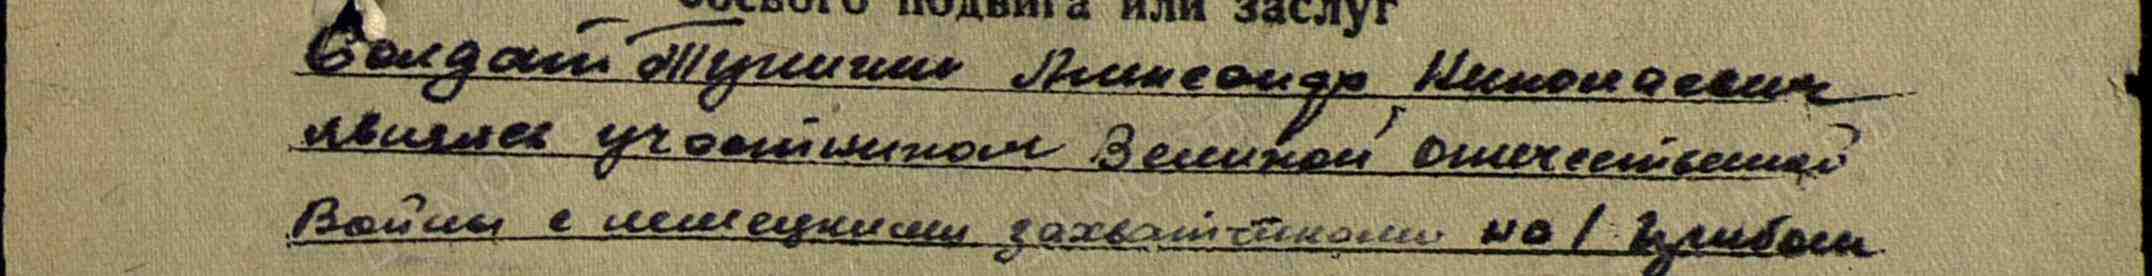 боевого подвига или заслуг
Солдат Тунин Александр Николаевич
являясь участником Великой отечественной
Войны с немецкими захватчиками на 1 Прибал